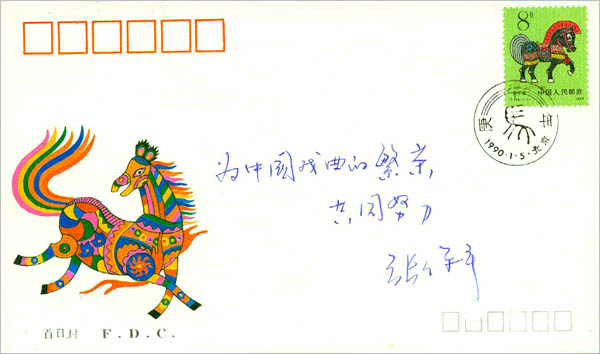 8分
中国人民邮政
庚午
1990·1·5·北京
为中国戏曲的繁荣
共同努力
张
首日封 F.D.C.